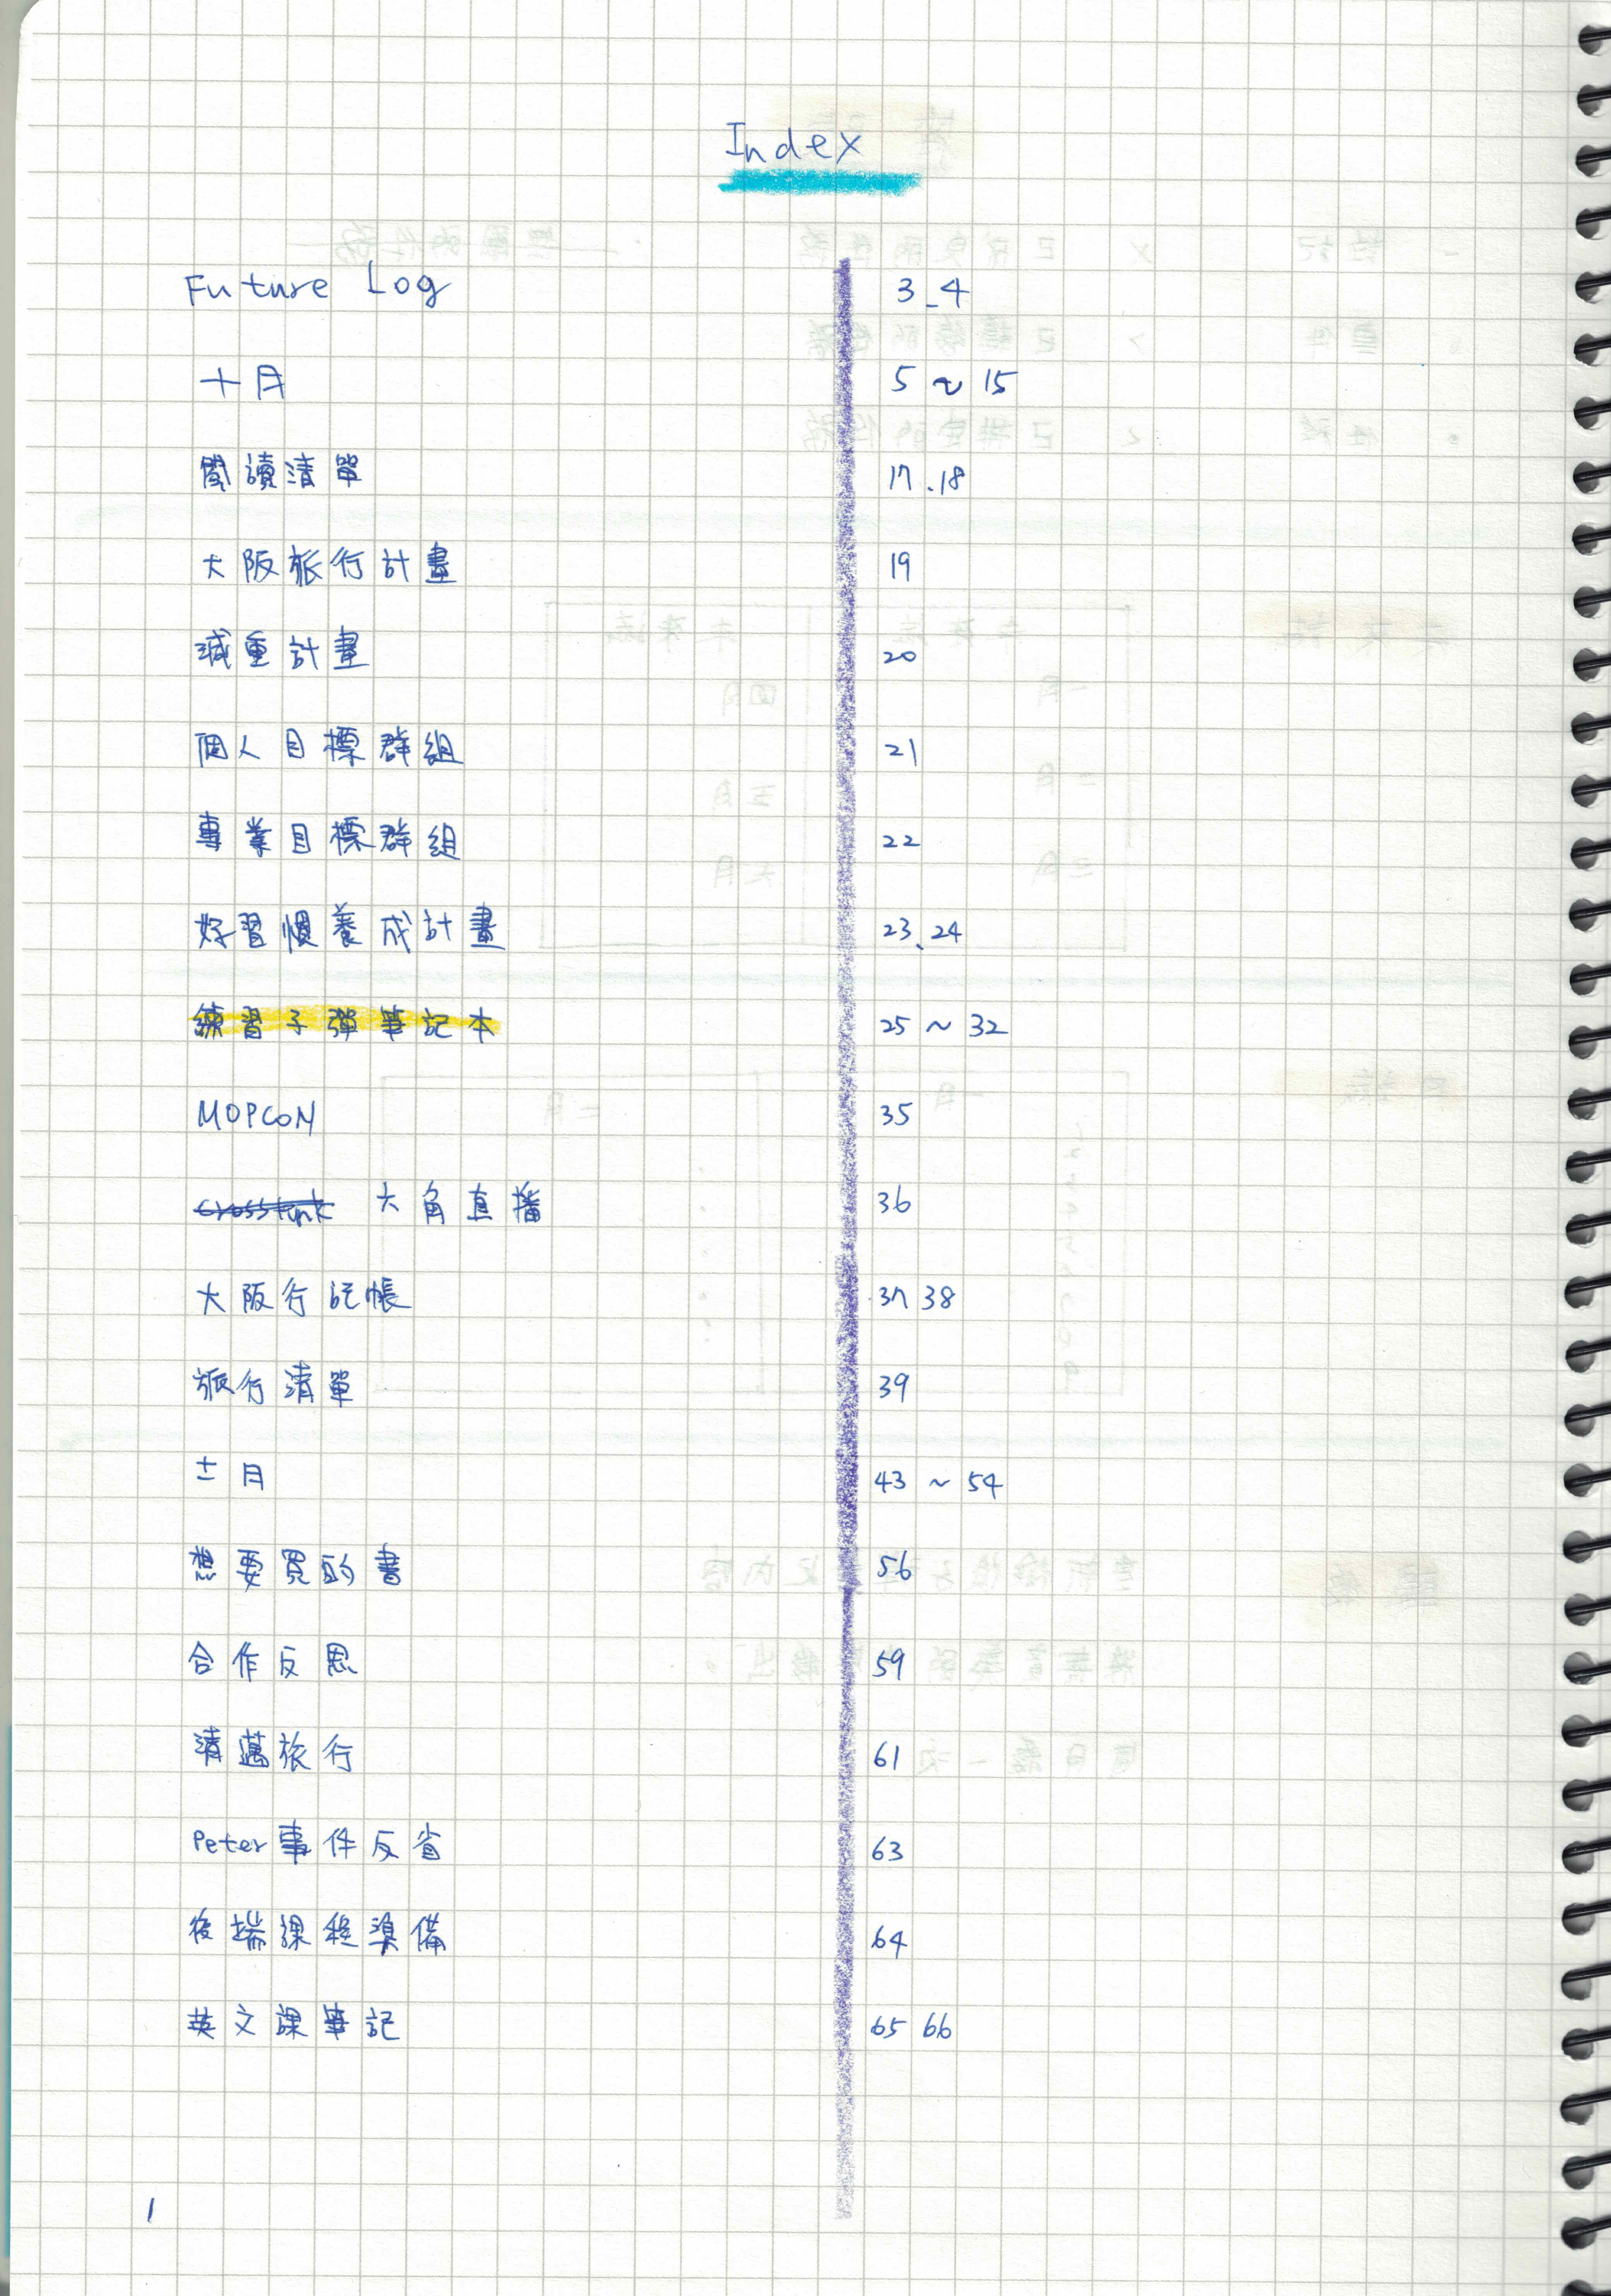 Index
Future Log 3-4
十月 5~15
閱讀清單 17.18
大阪旅行計畫 19
減重計畫 20
個人目標群組 21
專業目標群組 22
好習慣養成計畫 23、24
練習子彈筆記本 25~32
MOPCON 35
六角直播 36
大阪行記帳 37 38
旅行清單 39
十二月 43~54
想要買的書 56
合作反思 59
清邁旅行 61
Peter事件反省 63
後端課程準備 64
英文課筆記 65 66
1